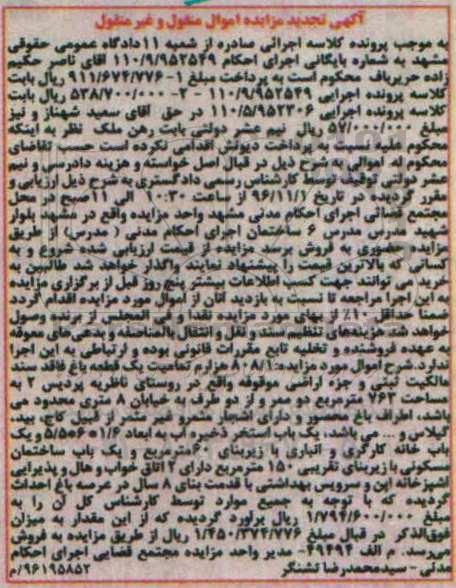 آگهی تجدید مزایده اموال منقول و غیر منقول
به موجب پرونده کلاسه اجرائی صادره از شعبه ۱۱ دادگاه عمومی حقوقی
مشهد به شماره بایگانی اجرای احکام ۱۱۰/۹/۹۵۲۵۴۹ آقای ناصر حکیم
زاده حریرباف محکوم است به پرداخت مبلغ ۱- ۹۱۱/۶۷۴/۷۷۶ ریال بابت
کلاسه پرونده اجرایی ۱۱۰/۹/۹۵۲۵۴۹ - ۲- ۵۳۸/۷۰۰/۰۰۰ ریال بابت
کلاسه پرونده اجرایی ۱۱۰/۵/۹۵۲۳۰۶ در حق آقای سعید شهناز و نیز
مبلغ ۵۷/۰۰۰/۰۰۰ ریال نیم عشر دولتی بابت رهن ملک نظر به اینکه
محکوم علیه نسبت به پرداخت دیونش اقدامی نکرده است حسب تقاضای
محکوم له اموالی به شرح ذیل در قبال اصل خواسته و هزینه دادرسی و نیم
عشر دولتی توقیف و توسط کارشناس رسمی دادگستری به شرح ذیل ارزیابی و
مقرر گردیده در تاریخ ۹۶/۱۱/۱ از ساعت ۱۰:۳۰ الی ۱۱ صبح در محل
مجتمع قضائی اجرای احکام مدنی مشهد واحد مزایده واقع در مشهد بلوار
شهید مدرس مدرس ۶ ساختمان اجرای احکام مدنی ( مدرس ) از طریق
مزایده حضوری به فروش برسد مزایده از قیمت ارزیابی شده شروع و به
کسانی که بالاترین قیمت را پیشنهاد نمایند واگذار خواهد شد طالبین به
خرید می توانند جهت کسب اطلاعات بیشتر پنج روز قبل از برگزاری مزایده
به این اجرا مراجعه تا نسبت به بازدید آنان از اموال مورد مزایده اقدام گردد
ضمنا حداقل ۱۰٪ از بهای مورد مزایده نقدا و فی المجلس از برنده وصول
خواهد شد هزینه‌های تنظیم سند و نقل و انتقال بالمناصفه و بدهی‌های معوقه
به عهده فروشنده و تخلیه تابع مقررات قانونی بوده و ارتباطی به این اجرا
ندارد. شرح اموال مورد مزایده: تمامیت یک قطعه باغ فاقد سند
مالکیت ثبتی و جزء اراضی موقوفه واقع در روستای ناظریه پردیس ۲ به
مساحت ۷۶۳ مترمربع دو ممر و از دو طرف به خیابان ۸ متری محدود می
باشد، اطراف باغ محصور و دارای اشجار مثمر و غیر مثمر از قبیل کاج، بید،
گیلاس و ... می باشد. یک باب استخر ذخیره آب به ابعاد ۱/۶*۵*۵/۵ و یک
باب خانه کارگری و انباری با زیربنای ۶۰ مترمربع و یک باب ساختمان
مسکونی با زیربنای تقریبی ۱۵۰ مترمربع دارای ۲ اتاق خواب و هال و پذیرایی
آشپزخانه اپن و سرویس بهداشتی با قدمت بنای ۸ سال در عرصه باغ احداث
گردیده که با توجه به جمیع موارد توسط کارشناس کل آن را به
مبلغ ۱/۷۹۴/۶۰۰/۰۰۰ ریال براورد گردیده که از این مقدار به میزان
فوق‌الذکر در قبال مبلغ ۱/۴۵۰/۳۷۴/۷۷۶ ریال از طریق مزایده به فروش
می‌رسد. م الف ۴۹۴۹۴- مدیر واحد مزایده مجتمع قضایی اجرای احکام
مدنی - سیدمحمدرضا تشنگر ۹۶۱۹۵۸۵۲/م